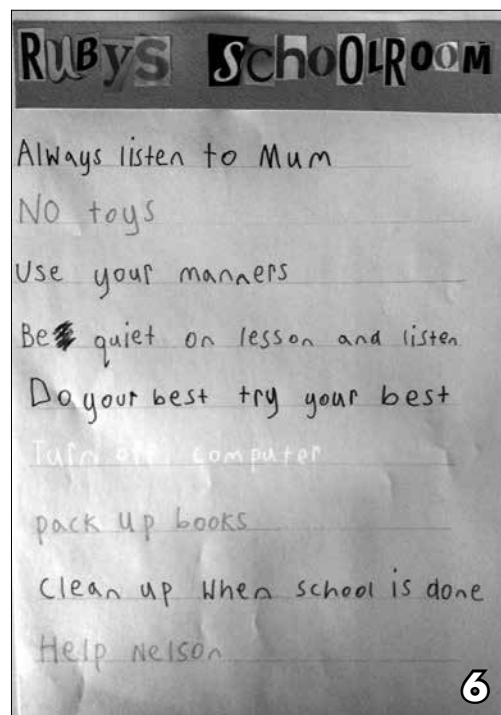 RUBYS SCHOOLROOM
Always listen to Mum
No toys
Use your manners
Be quiet on lesson and listen
Do your best try your best
Turn off computer
pack up books
Clean up when school is done
Help Nelson
6